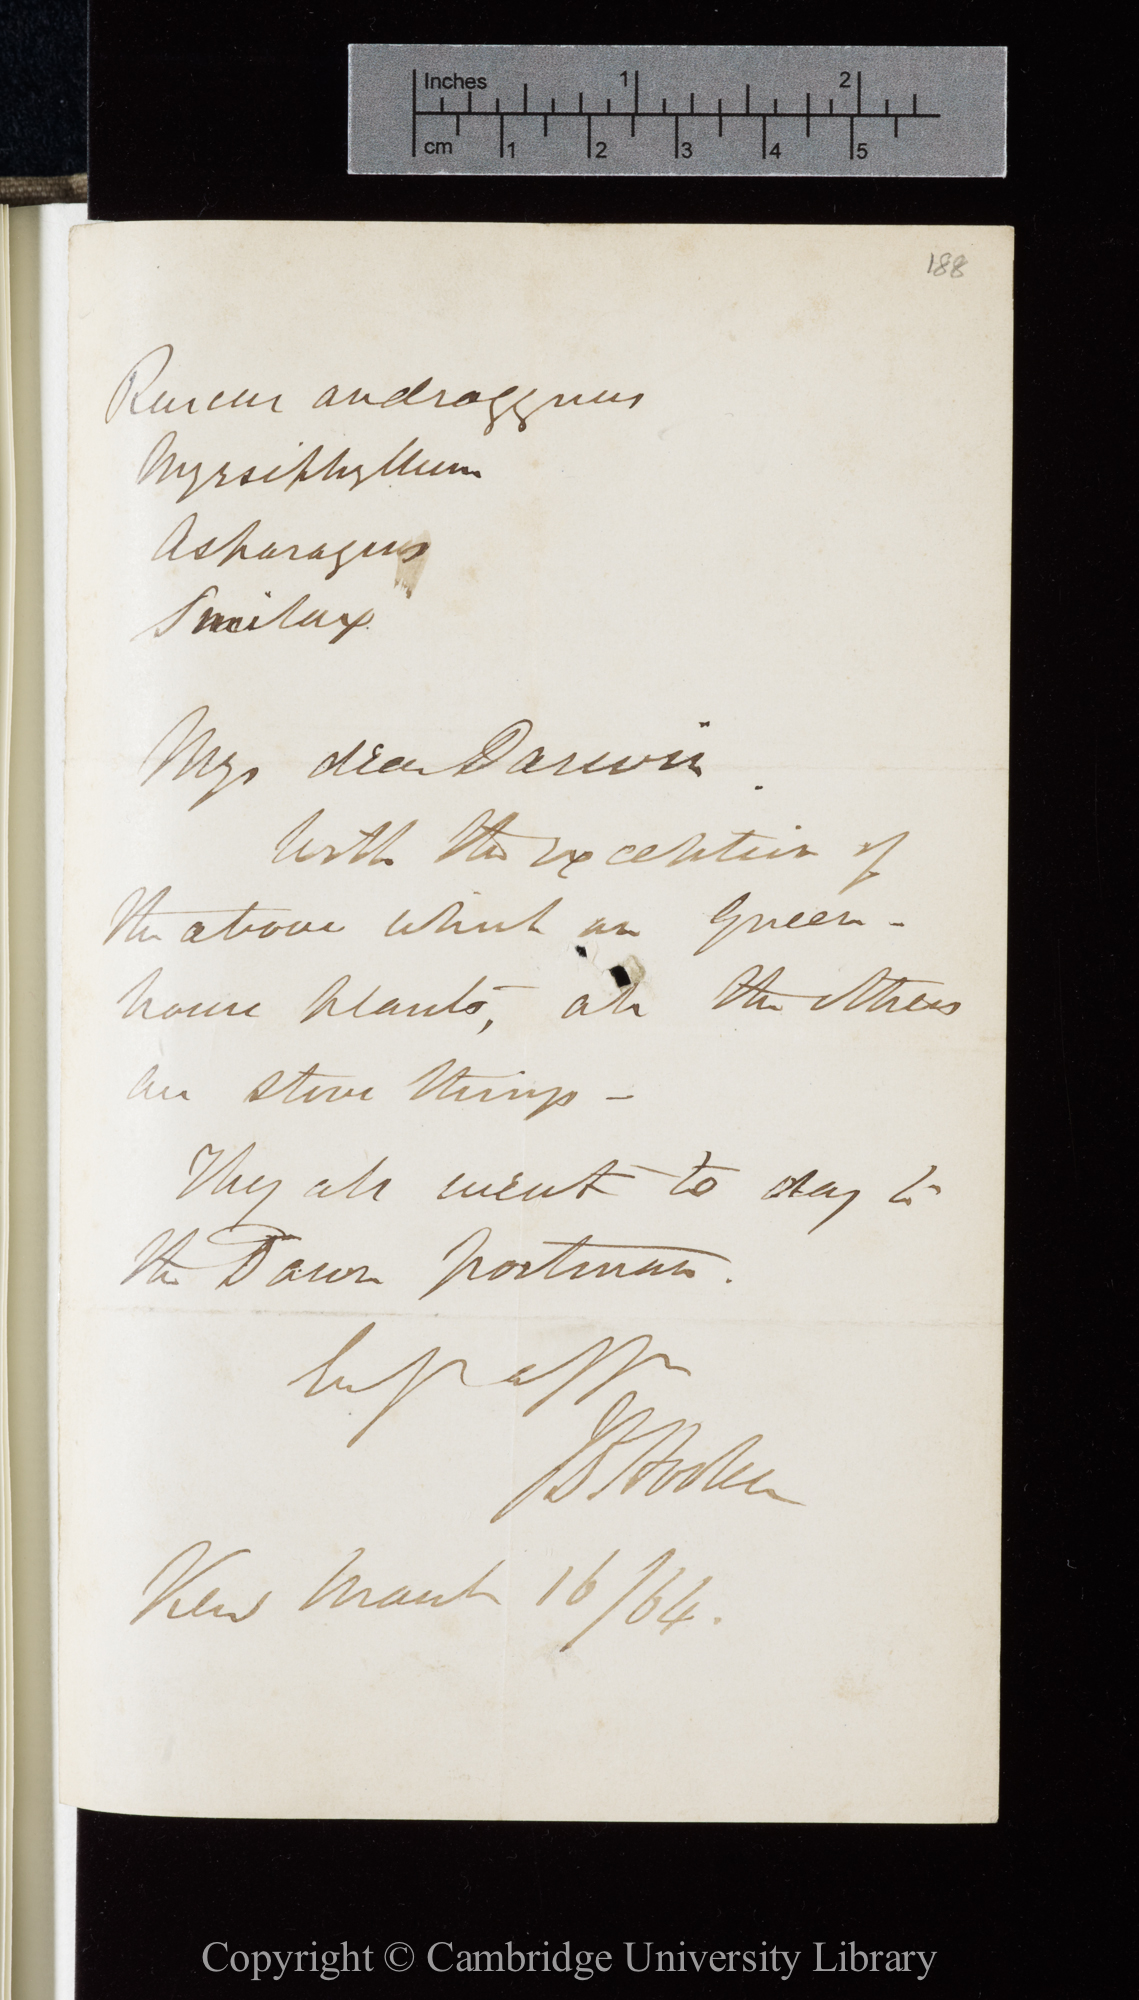 Inches 1 2
cm 1 2 3 4 5
188
Ruscus androgynus
Myrsiphyllum
Asparagus
Smilax
My dear Darwin.
With the exception of
the above which are Green-
house plants, all the others
are stove things —
They all went to day to
the Down postman.
Ever yr aff
JD Hooker
Kew March 16/64.
Copyright © Cambridge University Library